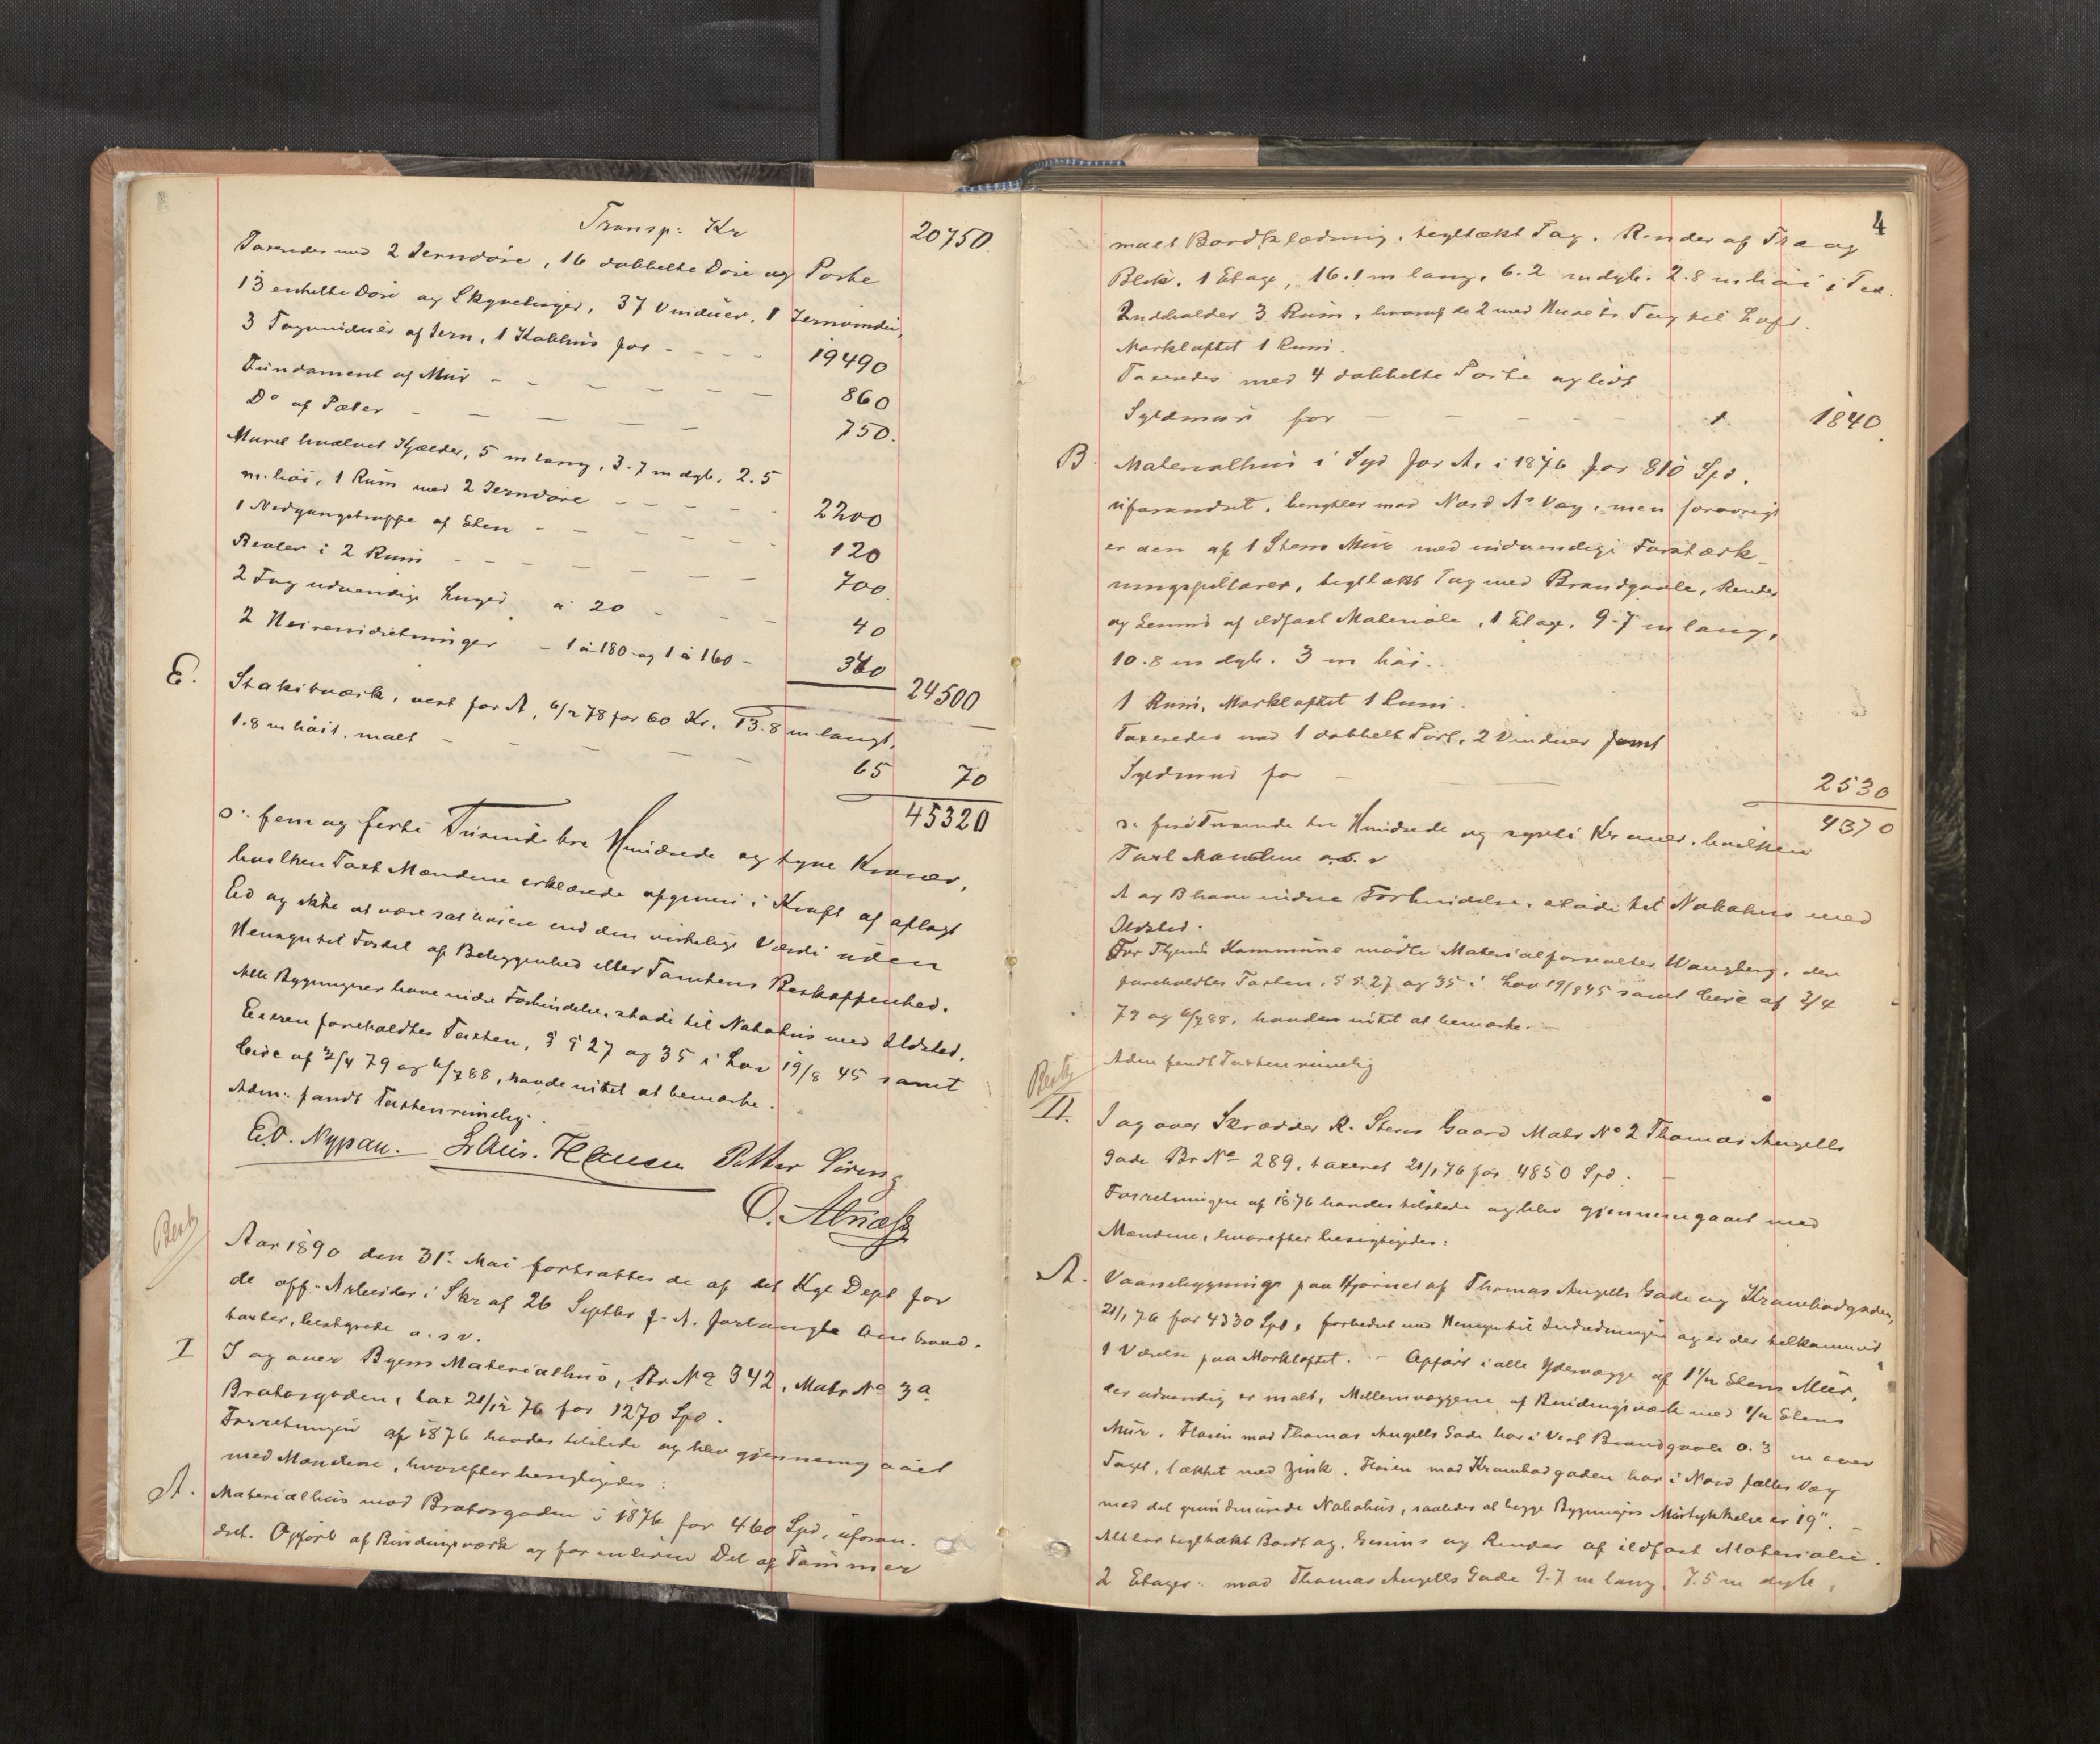 Transp: Kr 20750.
Taxeredes med 2 Jerndøre, 16 dobbelte Døre og Porte
13 enkelte Døre og Skyveluger, 37 Vinduer, 1 Jernvindu,
3 Tagvinduer af Jern, 1 Kobhus for - - - - 19490
Fundament af Mur - - - - - - 860
Do af Pæler - - - - - 750.
Muret hvælvet Kjælder, 5 m lang, 3.7 m dyb, 2.5
m. høi, 1 Rum med 2 Jerndøre - - - - - 2200
1 Nedgangstrappe af Sten - - - - - - 120
Reoler i 2 Rum - - - - - - - 700.
2 Fag udvendige Luger à 20 - - - - 40
2 Heiseindretninger - 1 à 180 og 1 à 160 - 340
24500
E. Stakitværk, vest for A, 6/2 78 for 60 Kr. 13.8 m langt,
1.8 m høit. malt - - - - - 65 70
45320
ɔ: fem og førti Tusinde tre Hundrede og tyve Kroner,
hvilken Taxt Mændene erklærede afgiven i Kraft af aflagt
Ed og ikke at være sat høiere end den virkelige Værdi uden
Hensyn til Fordel af Beliggenhed eller Tomtens Beskaffenhed.
Alle Bygninger have indre Forbindelse, stødte til Nabohus med Ildsted.
Eieren foreholdtes Taxten, § § 27 og 35 i Lov 19/8 45 samt
Love af 3/4 79 og 6/7 88, havde intet at bemærke.
Adm: fandt Taxten rimelig.
Ed. Nypan. Laur. Hansen Petter
O. Alnæs
Besk
Aar 1890 den 31te Mai fortsattes de af det Kgl Dept for
de off. Arbeider i Skr af 26 Septbr f. A. forlangte Ombrand-
taxter, bestyrede o. s v.
I I og over Byens Materialhus, Br No 342, Matr No 3a
Bratørgaden, tax 21/12 76 for 1270 Spd.
Forretningen af 1876 havdes tilstede og blev gjennemgaaet
med Mændene, hvorefter besigtigedes:
A. Materialhus mod Bratørgaden i 1876 for 460 Spd, uforan-
dret. Opført af Bindingsværk og for en liden Del af Tømmer
4
malt Bordklædning, tegltækt Tag. Render af Træ og
Blik. 1 Etage, 16.1 m lang, 6.2 m dyb. 2.8 m høi i
Indeholder 3 Rum, hvoraf de 2 med Husets Tag til Loft.
Mørkloftet 1 Rum.
Taxeredes med 4 dobbelte Porte og lidt
Syldmur for - - - - - 1840.
B. Materialhus i Syd for A. i 1876 for 810 Spd.
uforandret, benytter mod Nord A's Væg, men forøvrigt
er den af 1 Stens Mur med indvendige Forstærk-
ningspillarer, tegltækt Tag med Brandgavle, Render
og Gesims af ildfast Materiale, 1 Etage. 9.7 m lang,
10.8 m dyb. 3 m høi.
1 Rum, Mørkloftet 1 Rum.
Taxeredes med 1 dobbelt Port, 2 Vinduer samt
Syldmur for - - 2530
4370
ɔ: fire Tusinde tre Hundrede og sytti Kroner. hvilken
Taxt Mændene o. s. v
A og B have indre Forbindelse, stødte til Nabohus med
Ildsted.
For Thjems Kommune mødte Materialforvalter Wangberg, der
foreholdtes Taxten, § § 27 og 35 i Lov 19/8 45 samt Love af 3/4
79 og 6/7 88, havde intet at bemærke. -
Adm fandt Taxten rimelig
Besk
II. I og over Skrædder R. Stens Gaard Matr No 2 Thomas Angells
Gade Br No 289, taxeret 21/1 76 for 4850 Spd. -
Forretningen af 1876 havdes tilstede og blev gjennemgaaet med
Mændene, hvorefter besigtigedes:
A. Vaanebygninge paa Hjørnet af Thomas Angells Gade og Krambodgaden,
21/1 76 for 4330 Spd, forbedret med Hensyn til Indredningen og er der tilkommet
1 Værelse paa Mørkloftet. - Opført i alle Ydervægge af 1 1/2 Stens Mur,
der udvendig er malt, Mellemvæggene af Bindingsværk med 1/2 Stens
Mur. Fløien mod Thomas Angells Gade har i Vest Brandgavle 0.3 m over
Taget, tækket med Zink. Fløien mod Krambodgaden har i Nord fælles Væg
med det grundmurede Nabohus, saaledes at begge Bygningers Murtykkelse er 19". -
Alt har tegltækt Bordtag, Gesims og Render af ildfast Materiale.
2 Etager: mod Thomas Angells Gade 9.7 m lang, 7.5 m dyb,